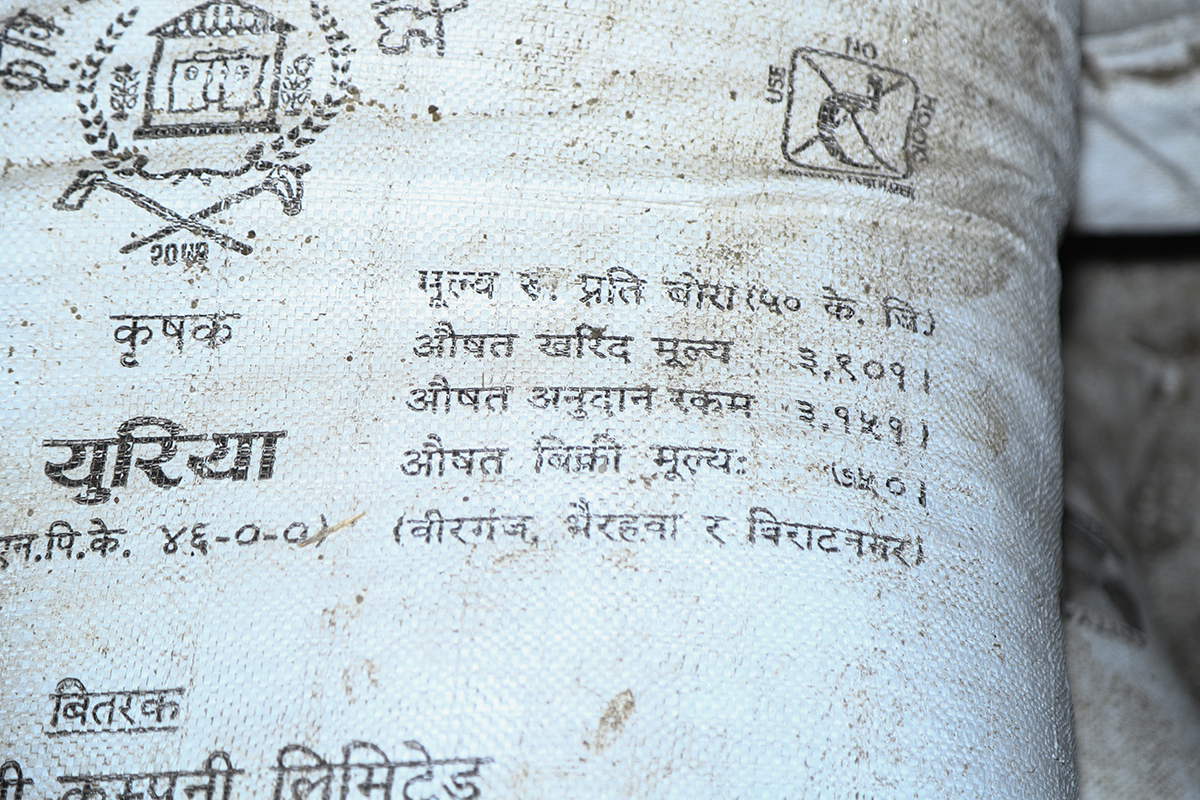 USE NO HOOKS
कृषक
मूल्य रु. प्रति बोरा (५० के. जि)
औषत खरिद मूल्य ३,९०१।
औषत अनुदान रकम ३,१५१।
युरिया
औषत बिक्री मूल्य: ७५०।
एन.पि.के. ४६-०-०)
(वीरगंज, भैरहवा र विराटनगर)
बितरक
कम्पनी लिमिटेड